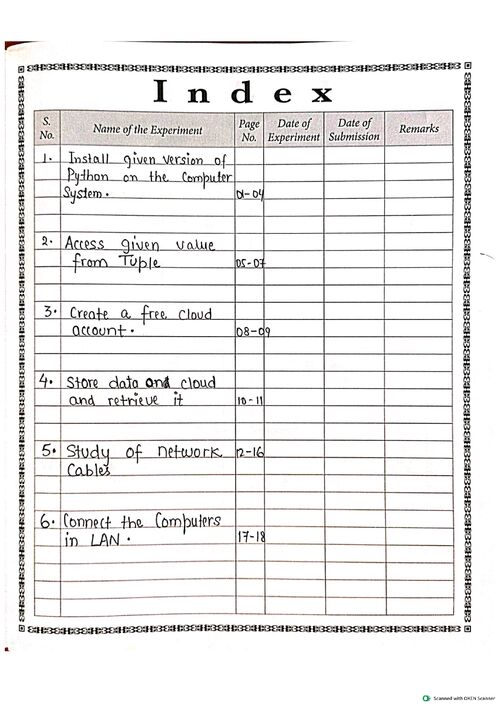 Index
S. No. Name of the Experiment Page No. Date of Experiment Date of Submission Remarks
1. Install given version of
Python on the Computer
System. 01-04
2. Access given value
from Tuple 05-07
3. Create a free cloud
account. 08-09
4. Store data and cloud
and retrieve it 10-11
5. Study of network 12-16
Cables
6. Connect the Computers
in LAN. 17-18
Scanned with OKEN Scanner